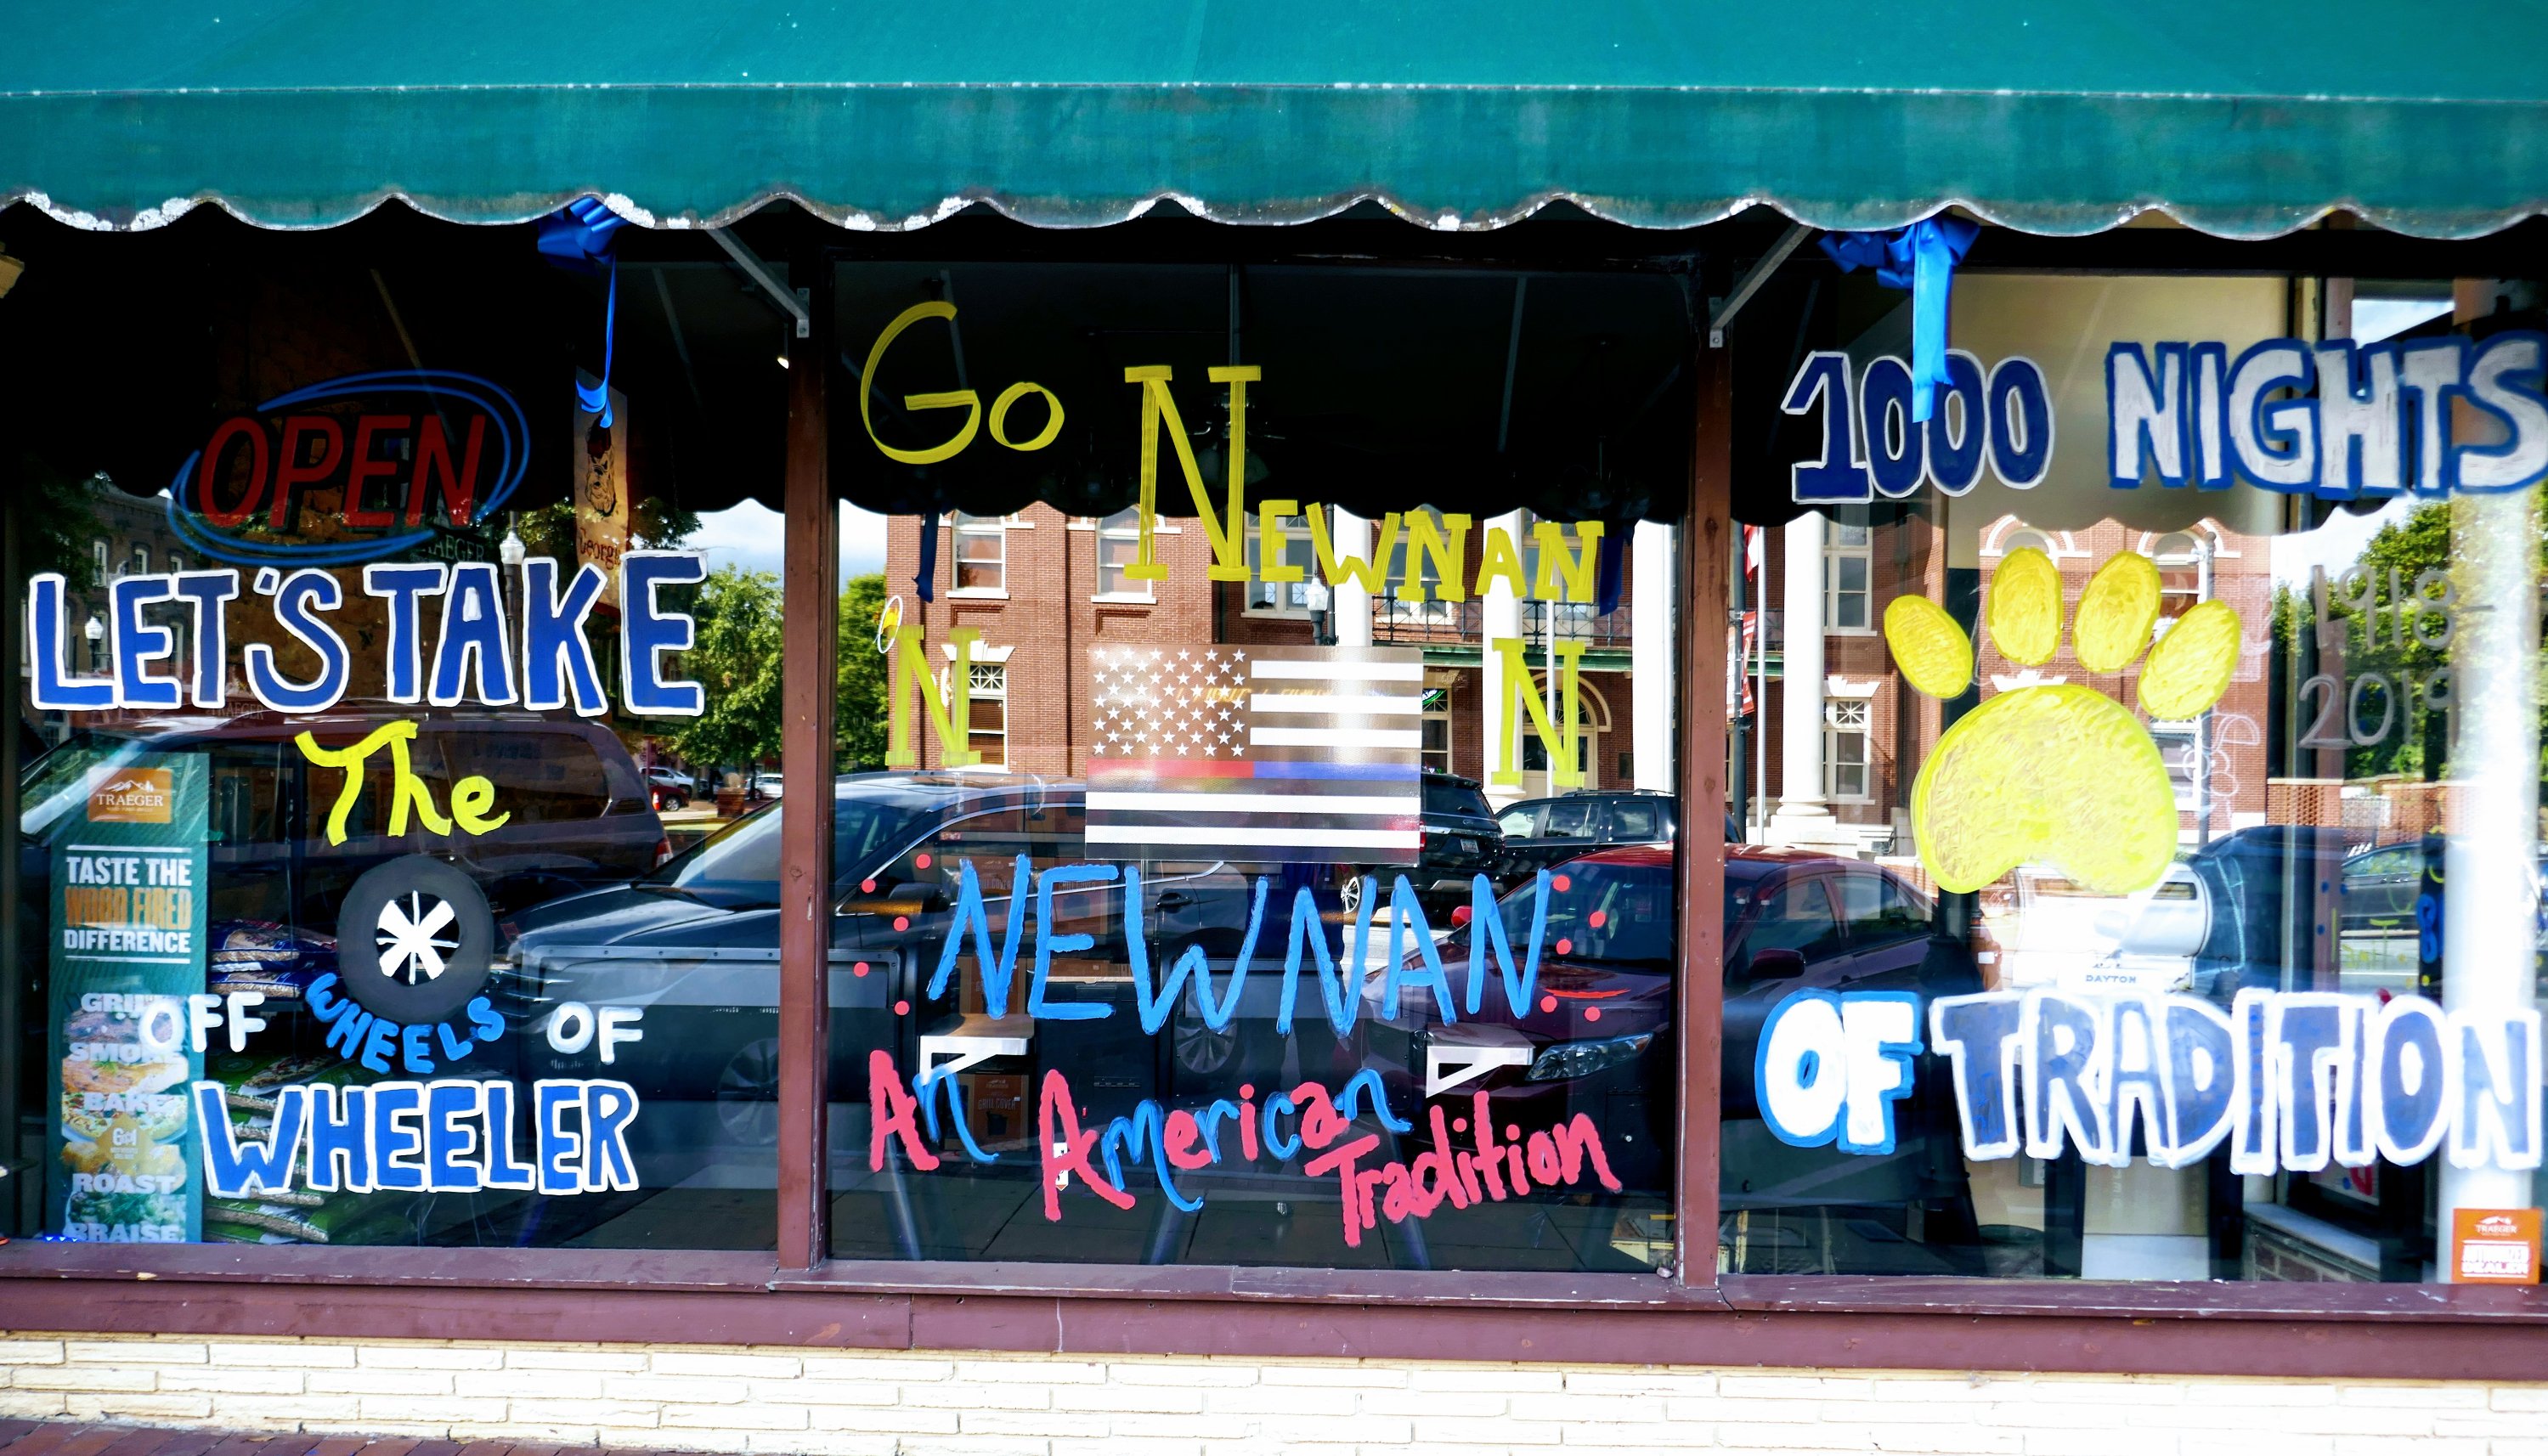 OPEN
LET'S TAKE
The
WHEELS
OFF OF
WHEELER
TRAEGER
TASTE THE
WOOD FIRED
DIFFERENCE
GRILL
SMOKE
BAKE
ROAST
BRAISE
Georgia
TRAEGER
Go NEWNAN
N N
NEWNAN
An American
Tradition
1000 NIGHTS
1918-
2019
DAYTON
OF TRADITION
TRAEGER